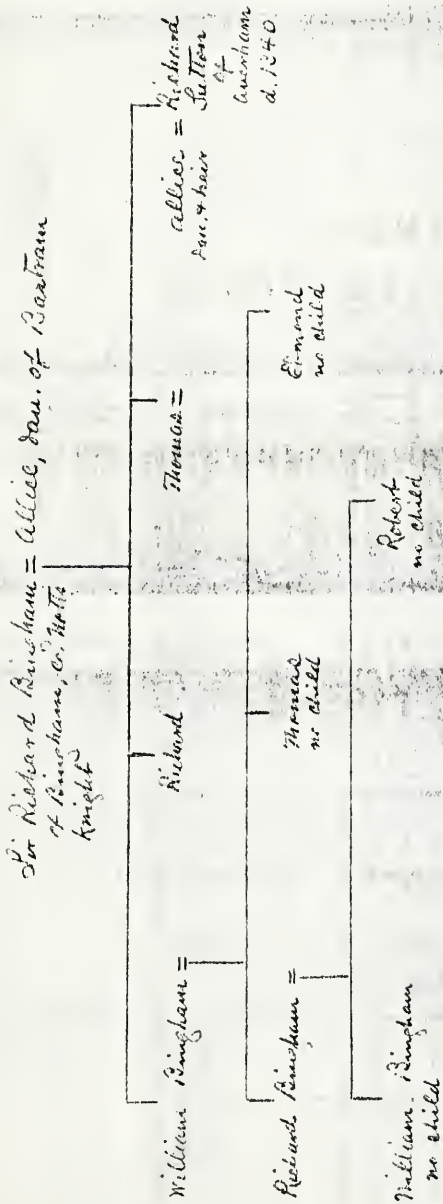 Sir Richard Bingham = Allice, dau. of Bartram
of Bingham, co. Notts
Knight
William Bingham =
Richard
Thomas =
Allice =
dau. & heir
Richard
Sutton
of
Averham
d. 1240.
Richard Bingham =
Thomas
no child
Edmond
no child
William Bingham
no child
Robert
no child